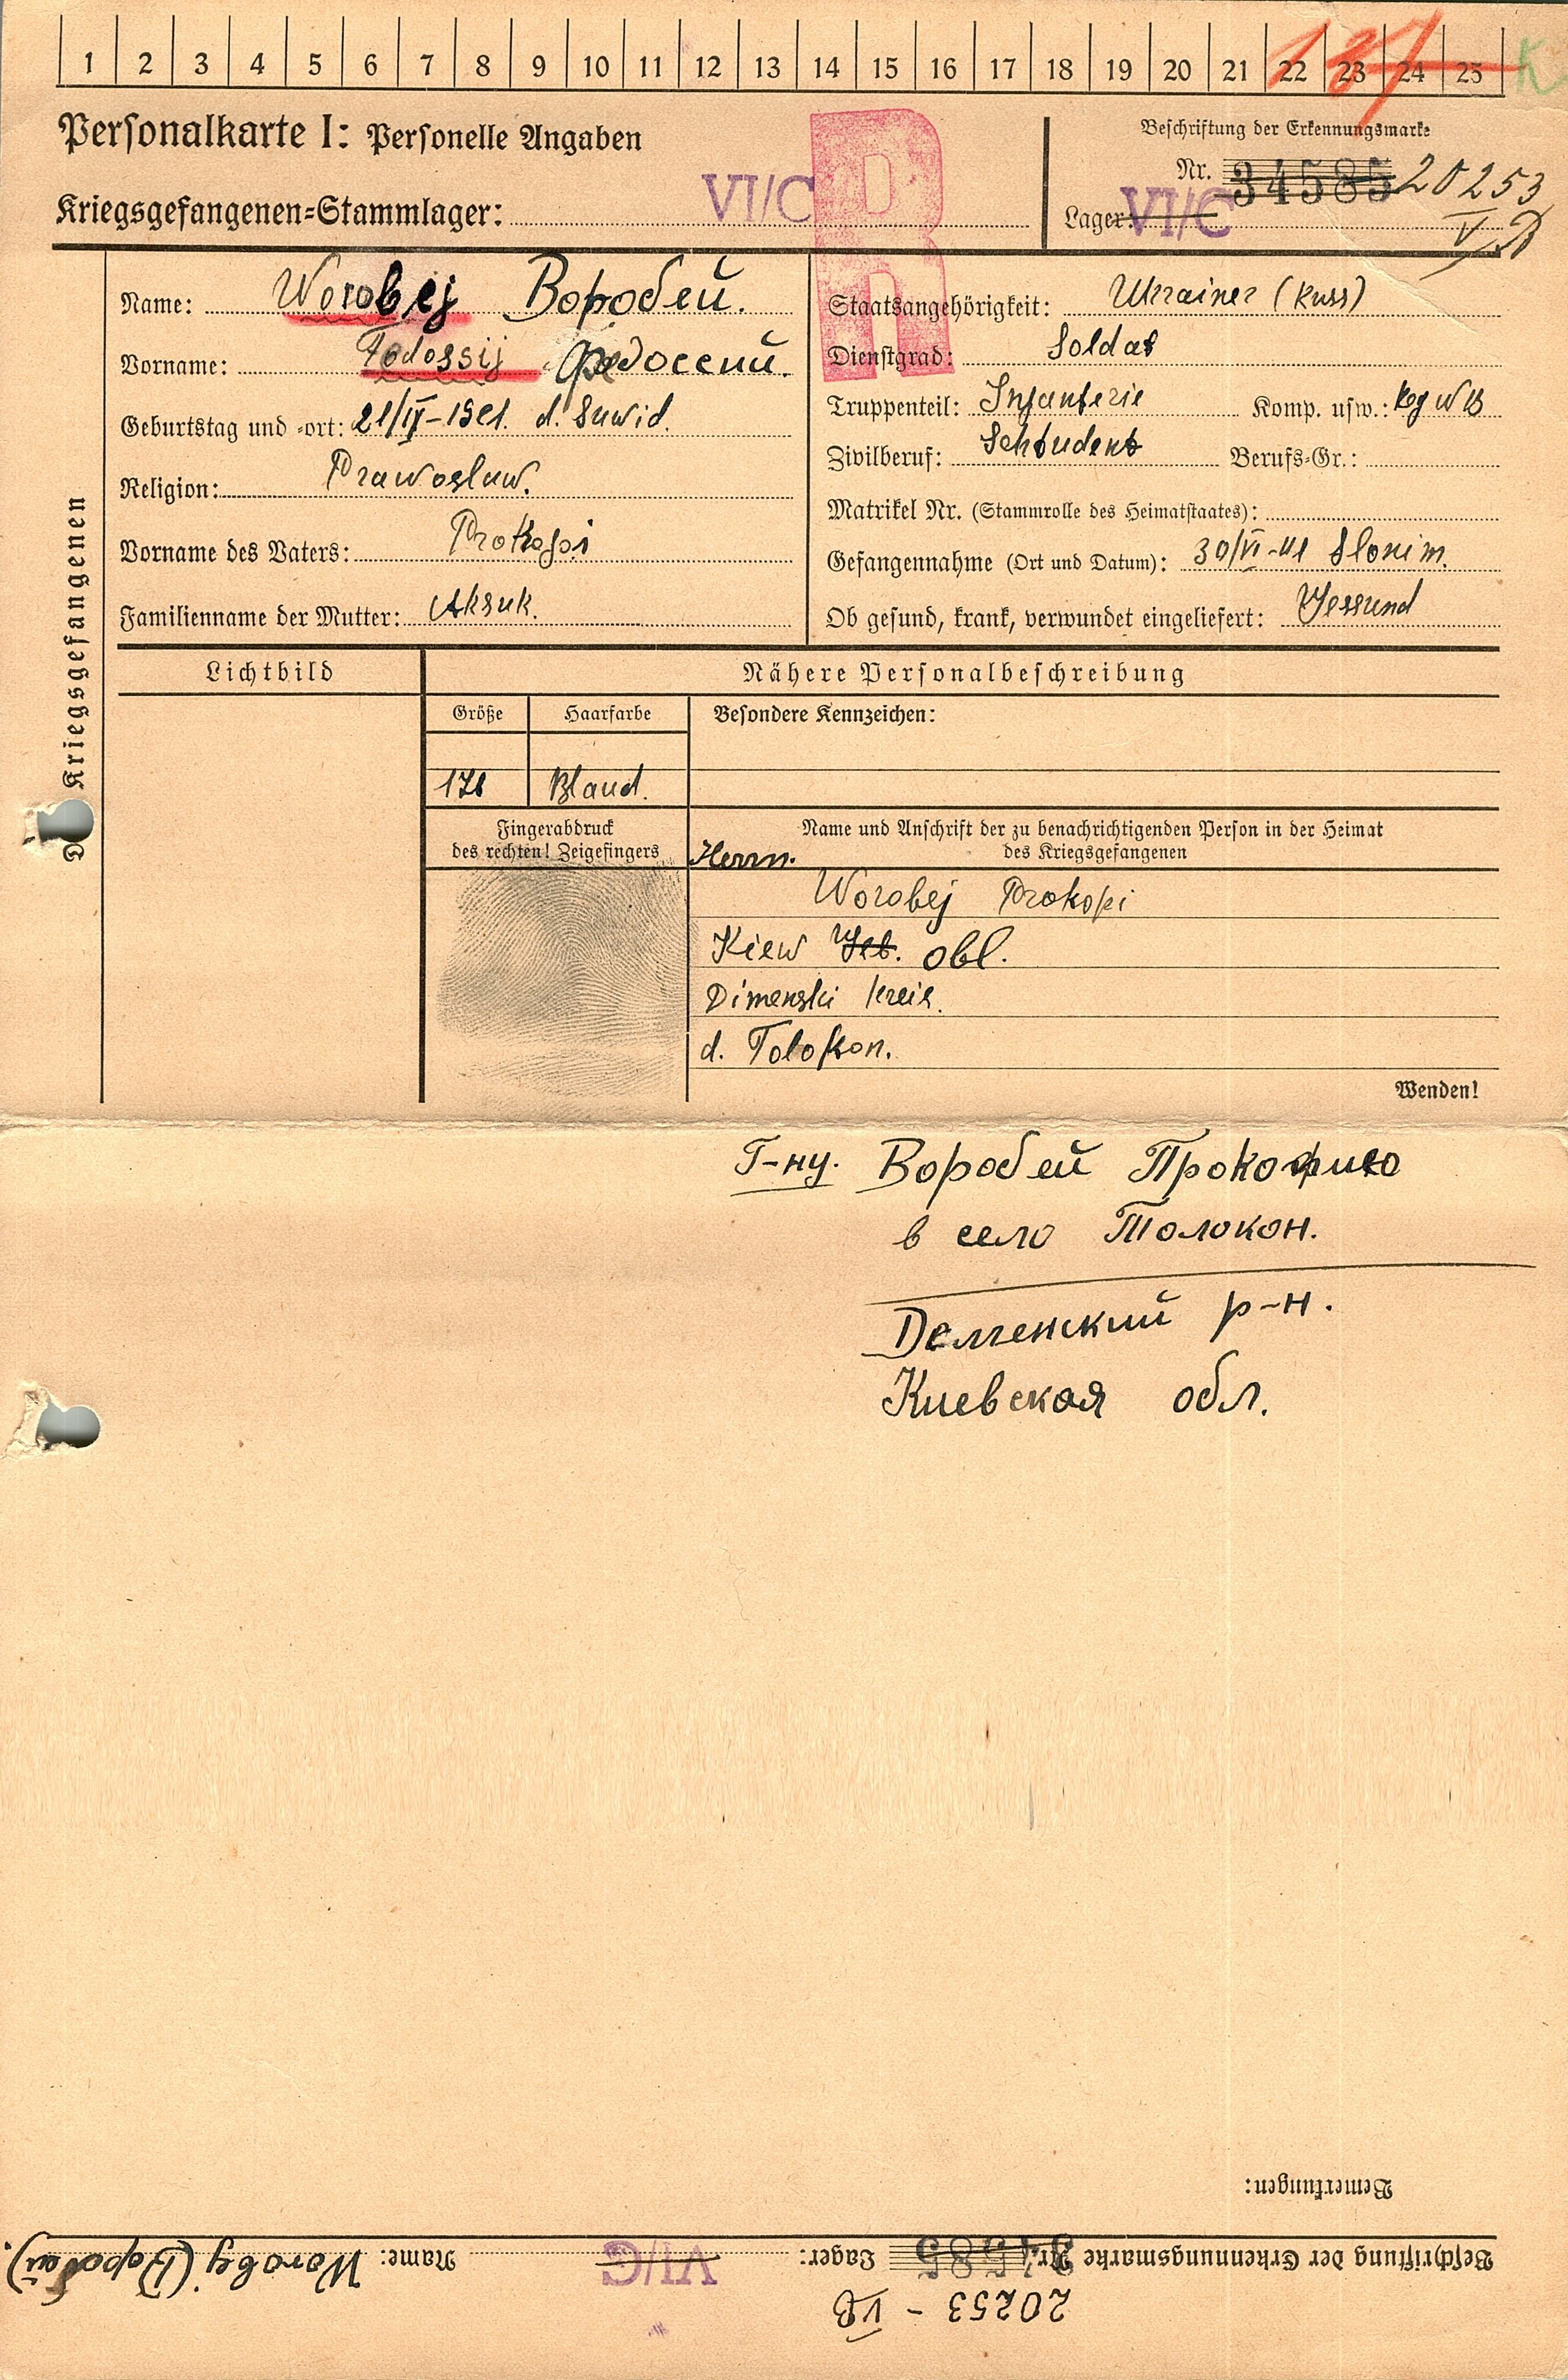 1 2 3 4 5 6 7 8 9 10 11 12 13 14 15 16 17 18 19 20 21 22 23 24 25
Personalkarte I: Personelle Angaben
Kriegsgefangenen=Stammlager: VI/C
Beschriftung der Erkennungsmarke
Nr. 34585 20253
Lager: VI/C
R
Name: Worobej Воробей.
Vorname: Fedossij Федоссий.
Geburtstag und =ort: 21/IV-1921. d. Suwid.
Religion: Prawoslaw.
Vorname des Vaters: Prokopi
Familienname der Mutter: Aksuk.
Staatsangehörigkeit: Ukrainer (Russ)
Dienstgrad: Soldat
Truppenteil: Infanterie Komp. usw.:
Zivilberuf: Schtudent Berufs=Gr.:
Matrikel Nr. (Stammrolle des Heimatstaates):
Gefangennahme (Ort und Datum): 30/VI-41 Slonim.
Ob gesund, krank, verwundet eingeliefert: Gessund
Kriegsgefangenen
Lichtbild
Nähere Personalbeschreibung
Größe Haarfarbe Besondere Kennzeichen:
171 Bland.
Fingerabdruck
des rechten! Zeigefingers
Name und Anschrift der zu benachrichtigenden Person in der Heimat
des Kriegsgefangenen
Herrn.
Worobej Prokopi
Kiew Geb. obl.
Dimenski kreis.
d. Tolokon.
Wenden!
Г-ну. Воробей Прокофию
в село Толокон.
Деменский р-н.
Киевская обл.
Bemerkungen:
Beschriftung der Erkennungsmarke Nr. 34585 Lager: VI/C Name: Worobej (Воробей).
20253 - VB